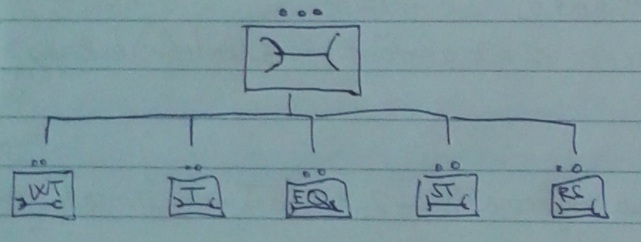 WT T EQ ST RS